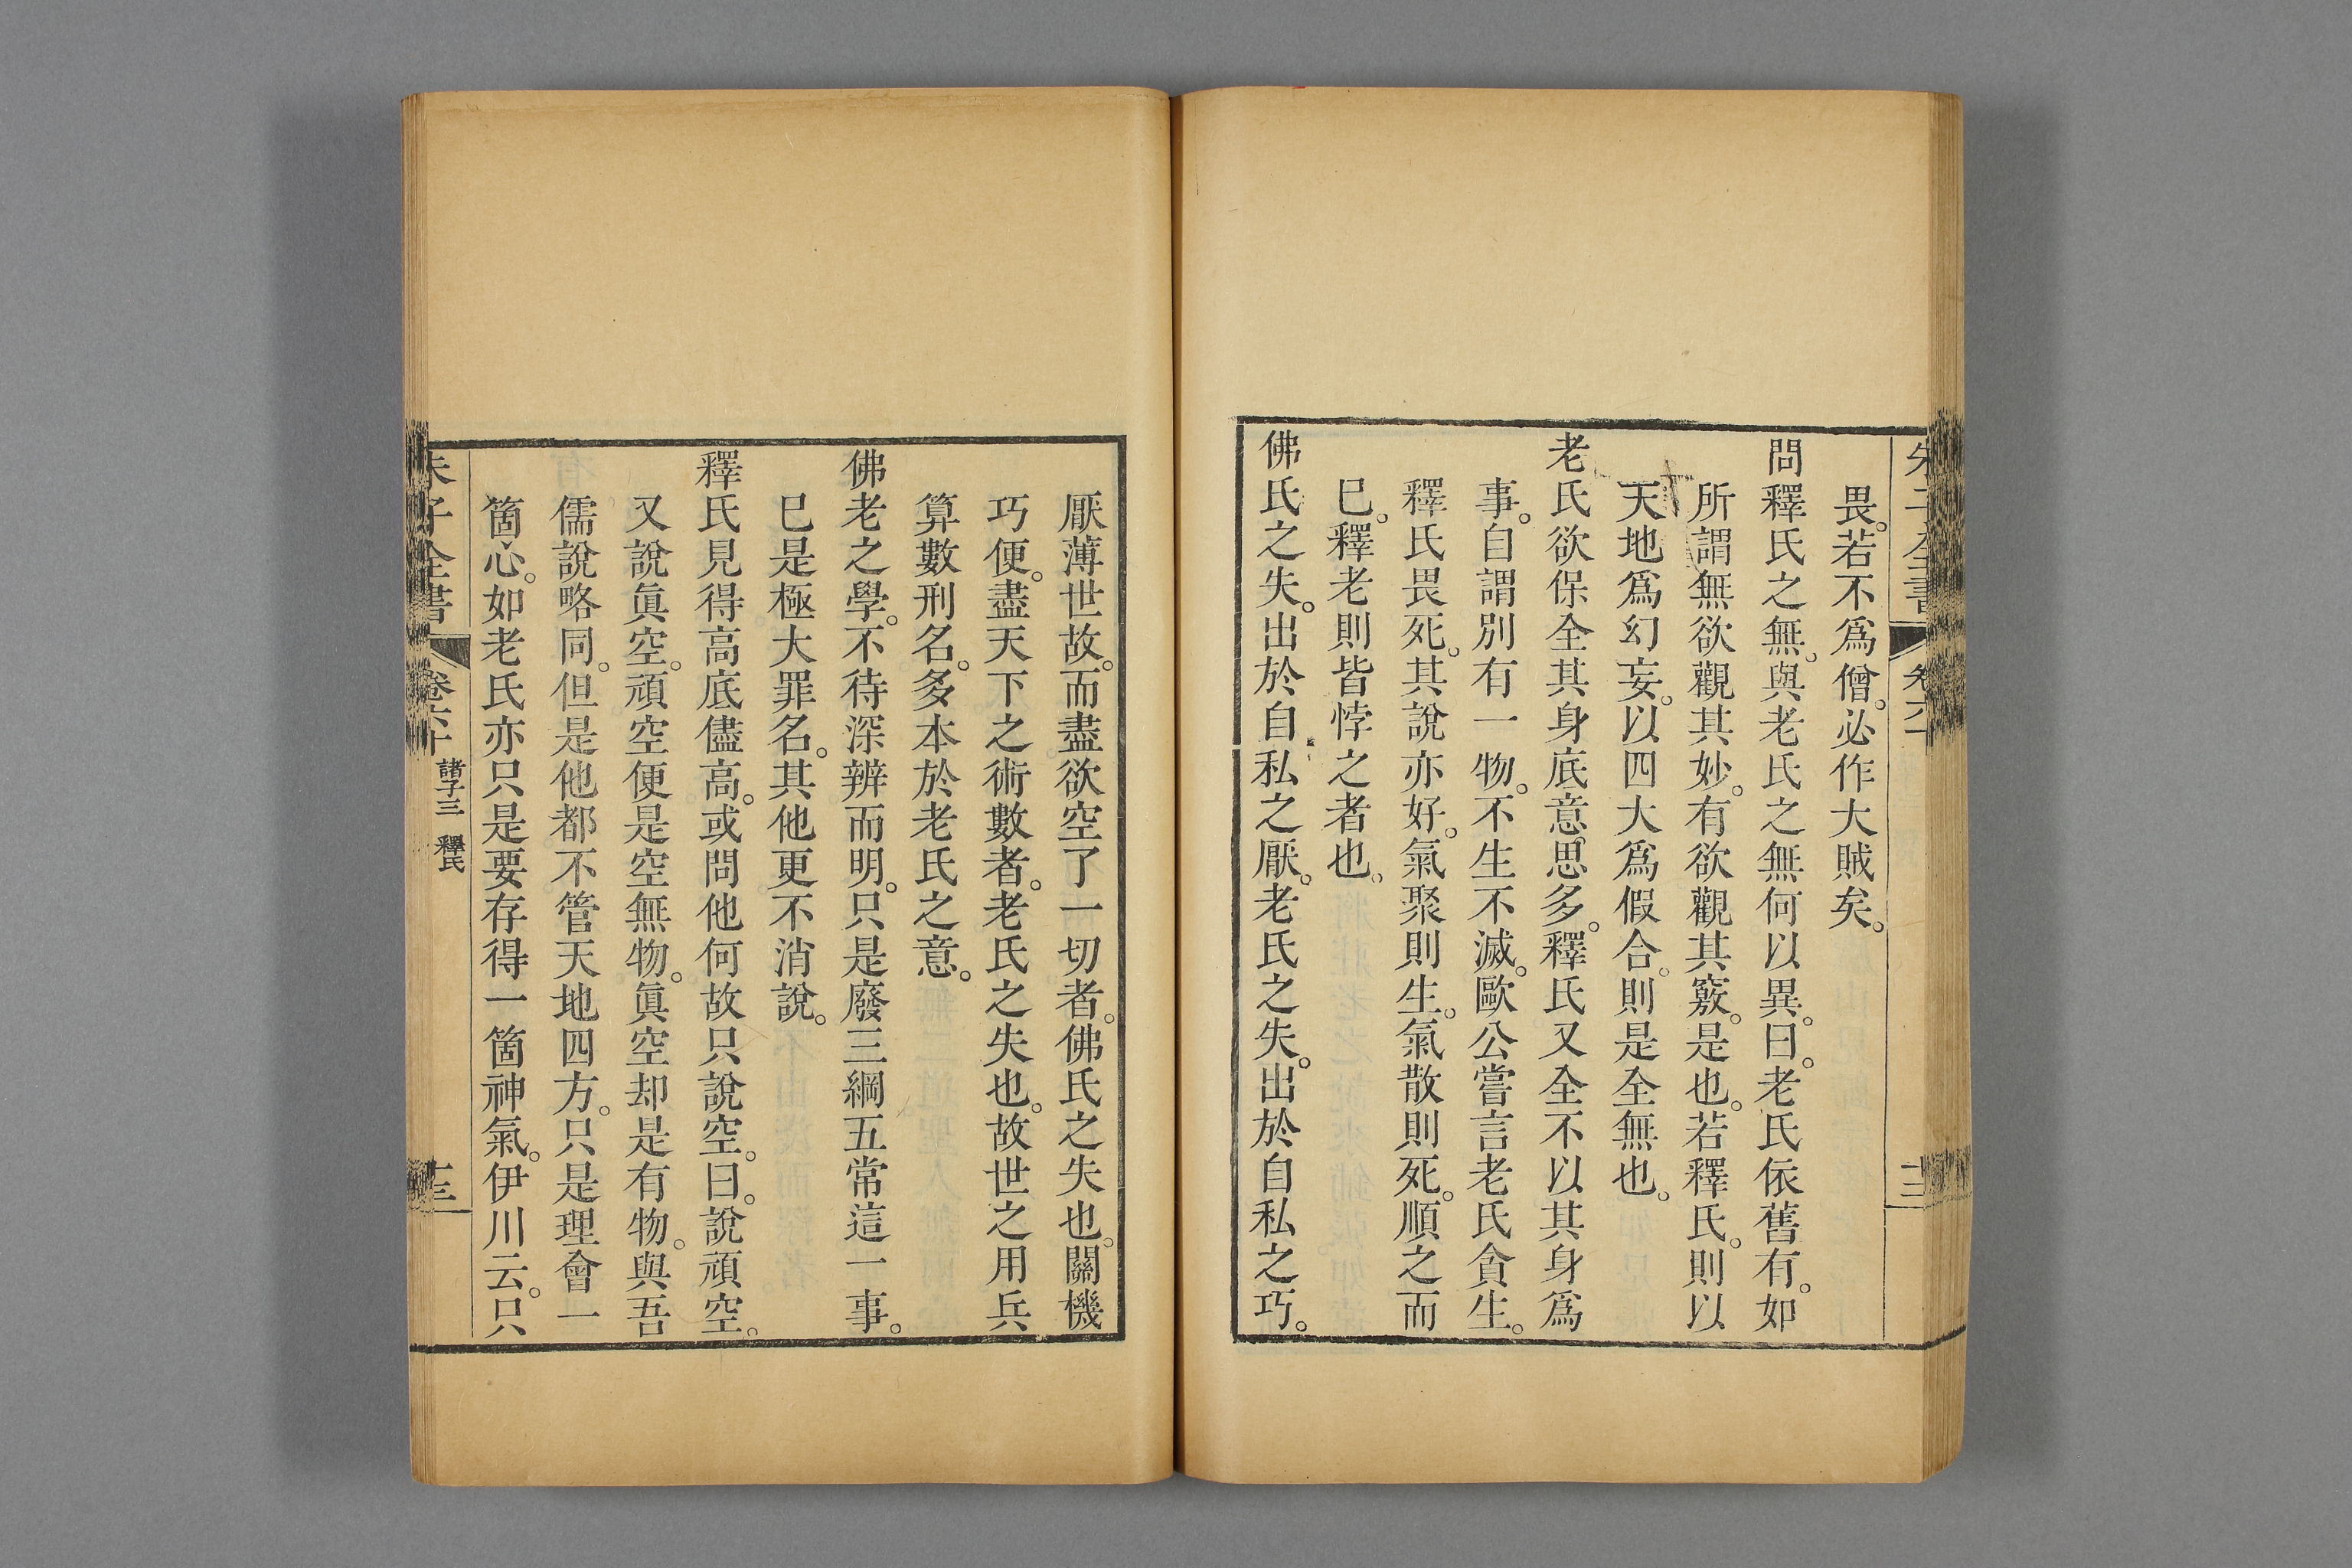 畏。若不爲僧。必作大賊矣。
問釋氏之無。與老氏之無何以異。曰。老氏依舊有。如
所謂無欲觀其妙。有欲觀其竅。是也。若釋氏。則以
天地爲幻妄。以四大爲假合。則是全無也。
老氏欲保全其身底意思多。釋氏又全不以其身爲
事。自謂別有一物。不生不滅。歐公嘗言老氏貪生。
釋氏畏死。其說亦好。氣聚則生。氣散則死。順之而
已。釋老則皆悖之者也。
佛氏之失。出於自私之厭。老氏之失。出於自私之巧。
厭薄世故。而盡欲空了一切者。佛氏之失也。關機
巧便。盡天下之術數者。老氏之失也。故世之用兵
算數刑名。多本於老氏之意。
佛老之學。不待深辨而明。只是廢三綱五常這一事。
已是極大罪名。其他更不消說。
釋氏見得高底儘高。或問他何故只說空。曰。說頑空。
又說眞空。頑空便是空無物。眞空却是有物。與吾
儒說略同。但是他都不管天地四方。只是理會一
箇心。如老氏亦只是要存得一箇神氣。伊川云。只
朱子全書 卷六十 諸子三 釋氏 十三